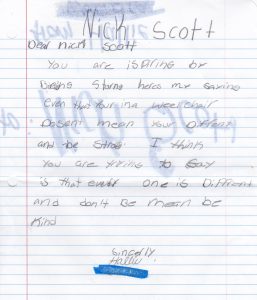 Nick Scott
Dear nick scott
You are isPiring by
Being Strong heres my saying
Even tho your in a weel chair
Dosent mean your Diffent
and be Strong I think
You are trying to Say
is that ever one is Diffrent
and don't Be mean be
kind
Sincerly